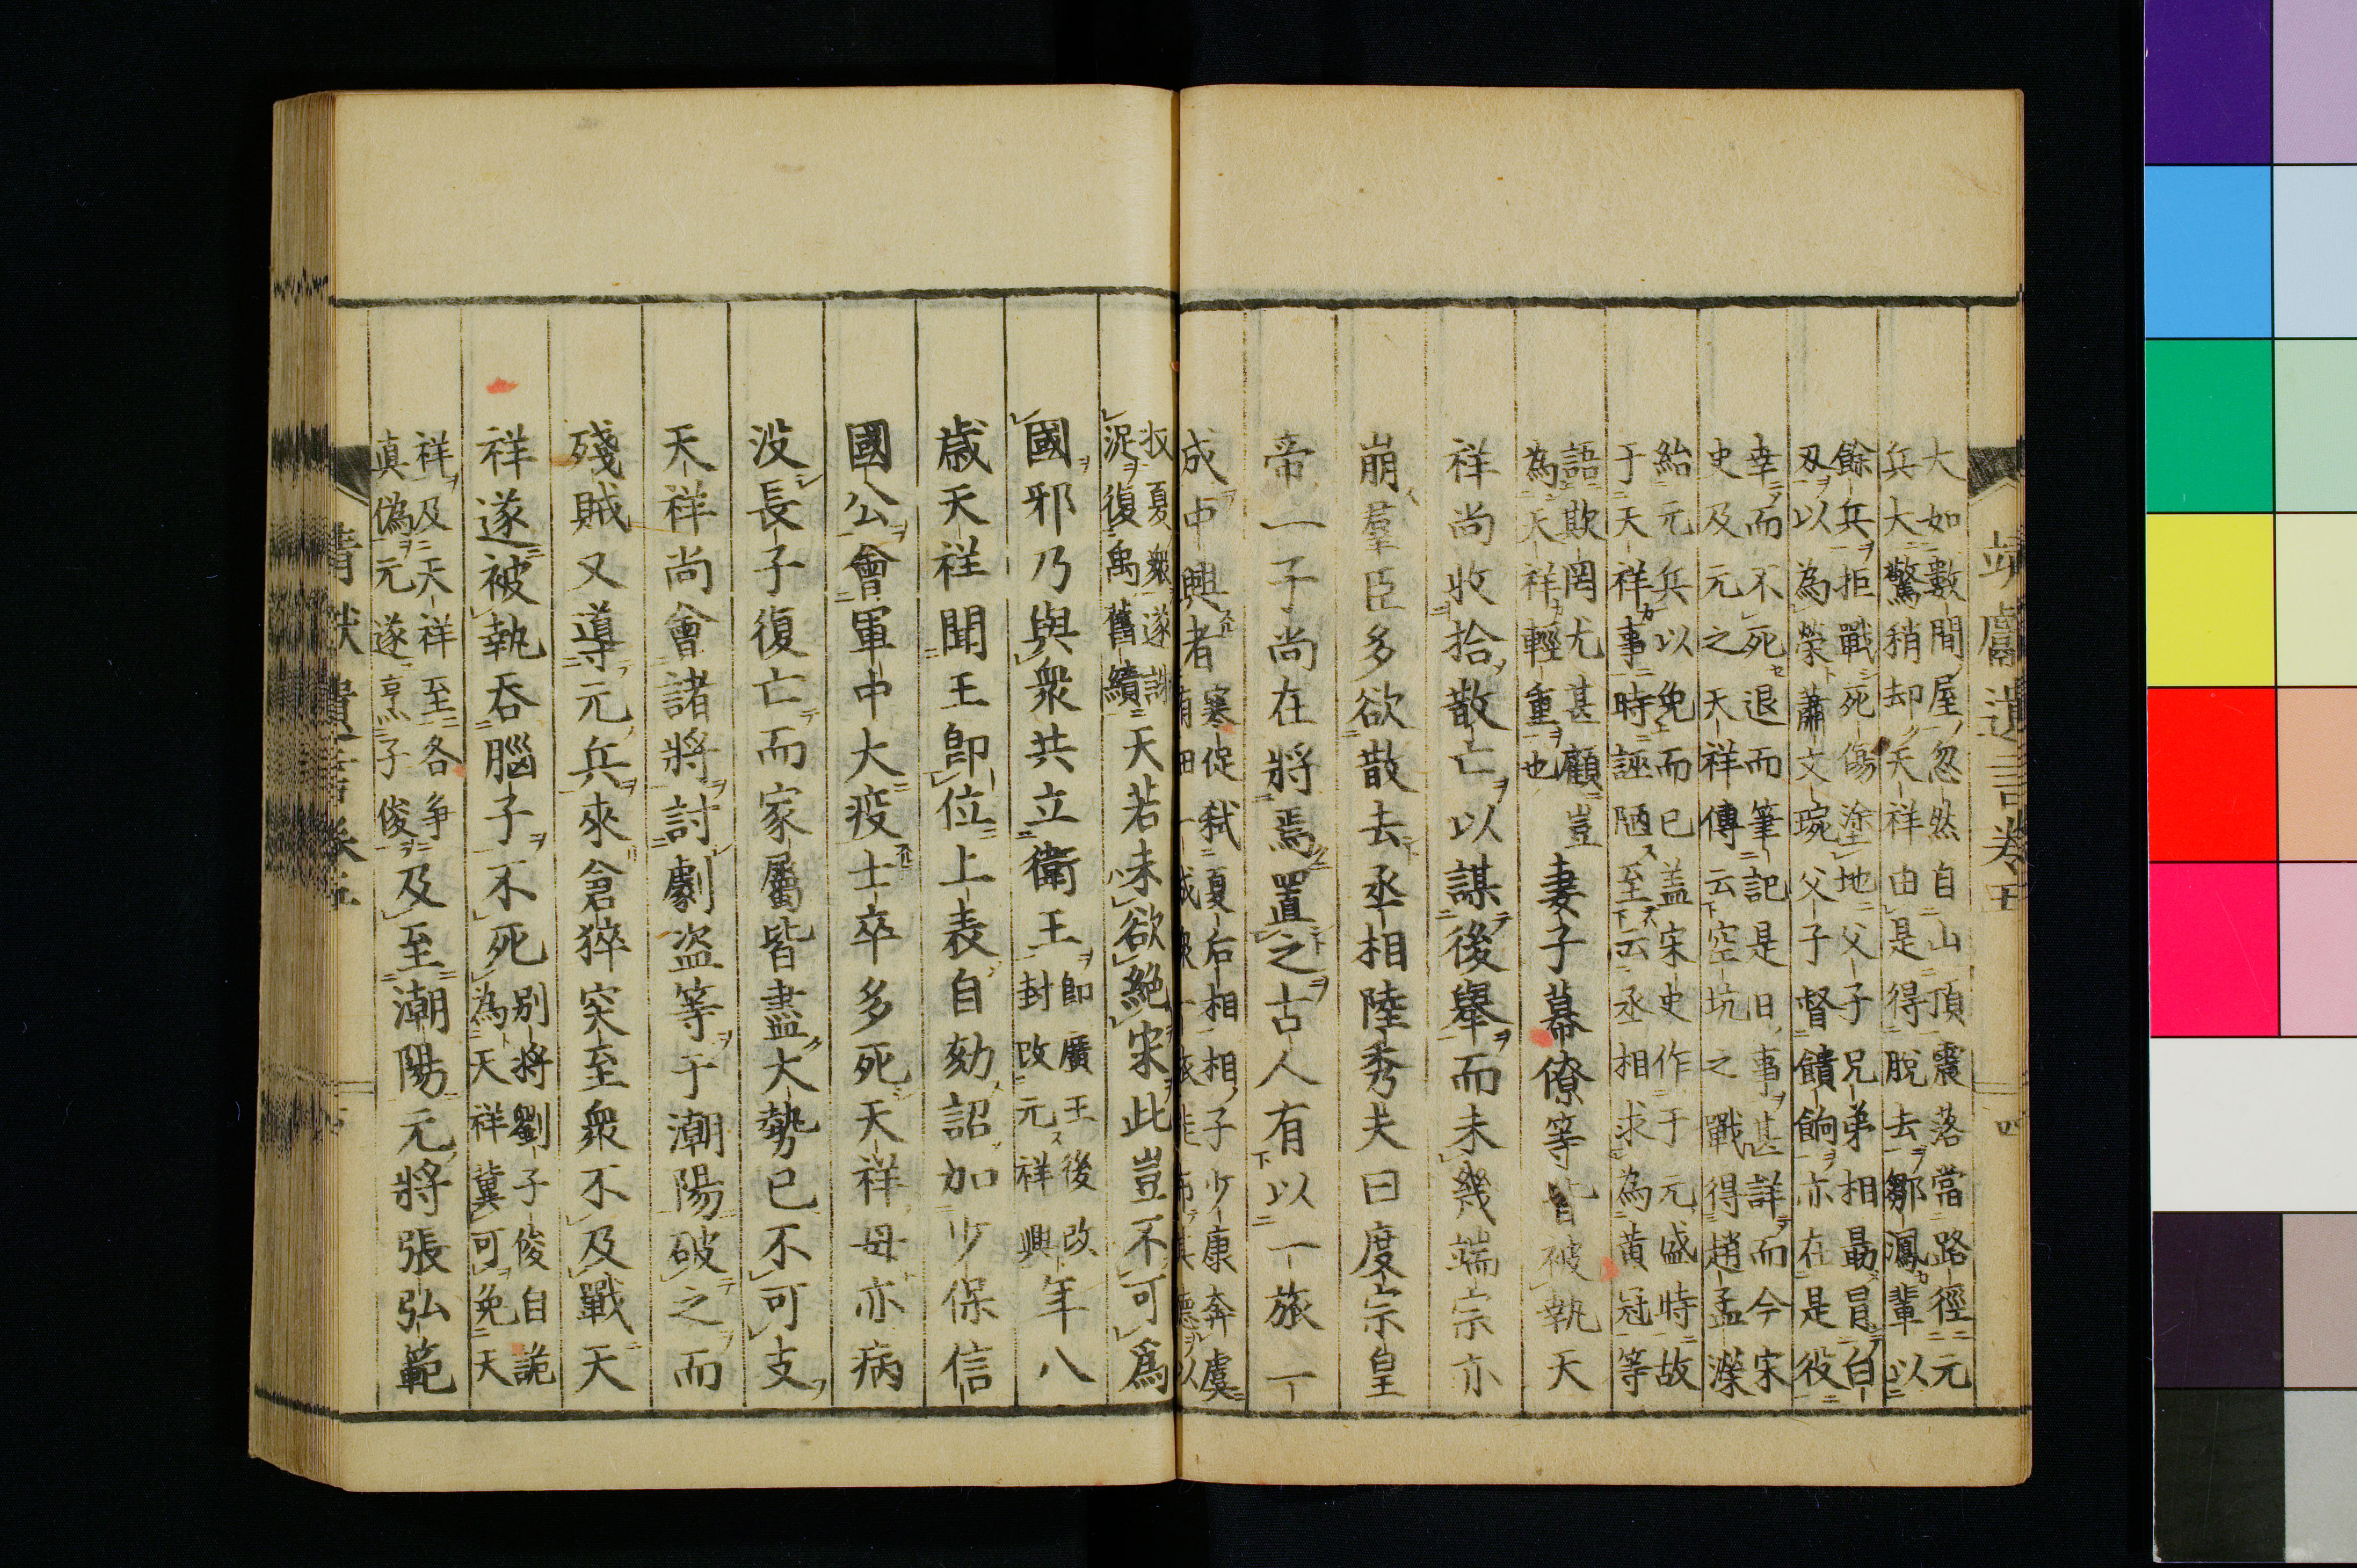 靖獻遺言卷五 四
大如數間屋忽然自山頂震落當路徑元
兵大驚稍却天祥由是得脫去鄒㵯輩以
餘兵拒戰死傷塗地父子兄弟相勗冒白
刄以為榮蕭文琬父子督饋餉亦在是役
幸而不死退而筆記是日事甚詳而今宋
史及元之天祥傳云空坑之戰得趙孟濚
紿元兵以免而已盖宋史作于元盛時故
于天祥事時誣陋至云丞相求為黄冠等
語欺罔尤甚顧豈
為天祥輕重也
妻子幕僚等皆被執天
祥尚收拾散亡以謀後舉而未幾端宗亦
崩羣臣多欲散去丞相陸秀夫曰度宗皇
帝一子尚在將焉置之古人有以一旅一
成中興者
寒促弑夏后相相子少康奔虞
有田一成
德以
收夏衆遂誅
泥復禹舊績
天若未欲絶宋此豈不可爲
國邪乃與衆共立衛王
即廣王後改
封改元祥興
年八
歳天祥聞王即位上表自劾詔加少保信
國公會軍中大疫士卒多死天祥母亦病
没長子復亡而家屬皆盡大勢已不可支
天祥尚會諸將討劇盗等于潮陽破之而
殘賊又導元兵來倉猝突至衆不及戰天
祥遂被執吞腦子不死
别將劉子俊自詭
為天祥冀可免天
祥及天祥至各爭
真偽元遂烹子俊
及至潮陽元將張弘範